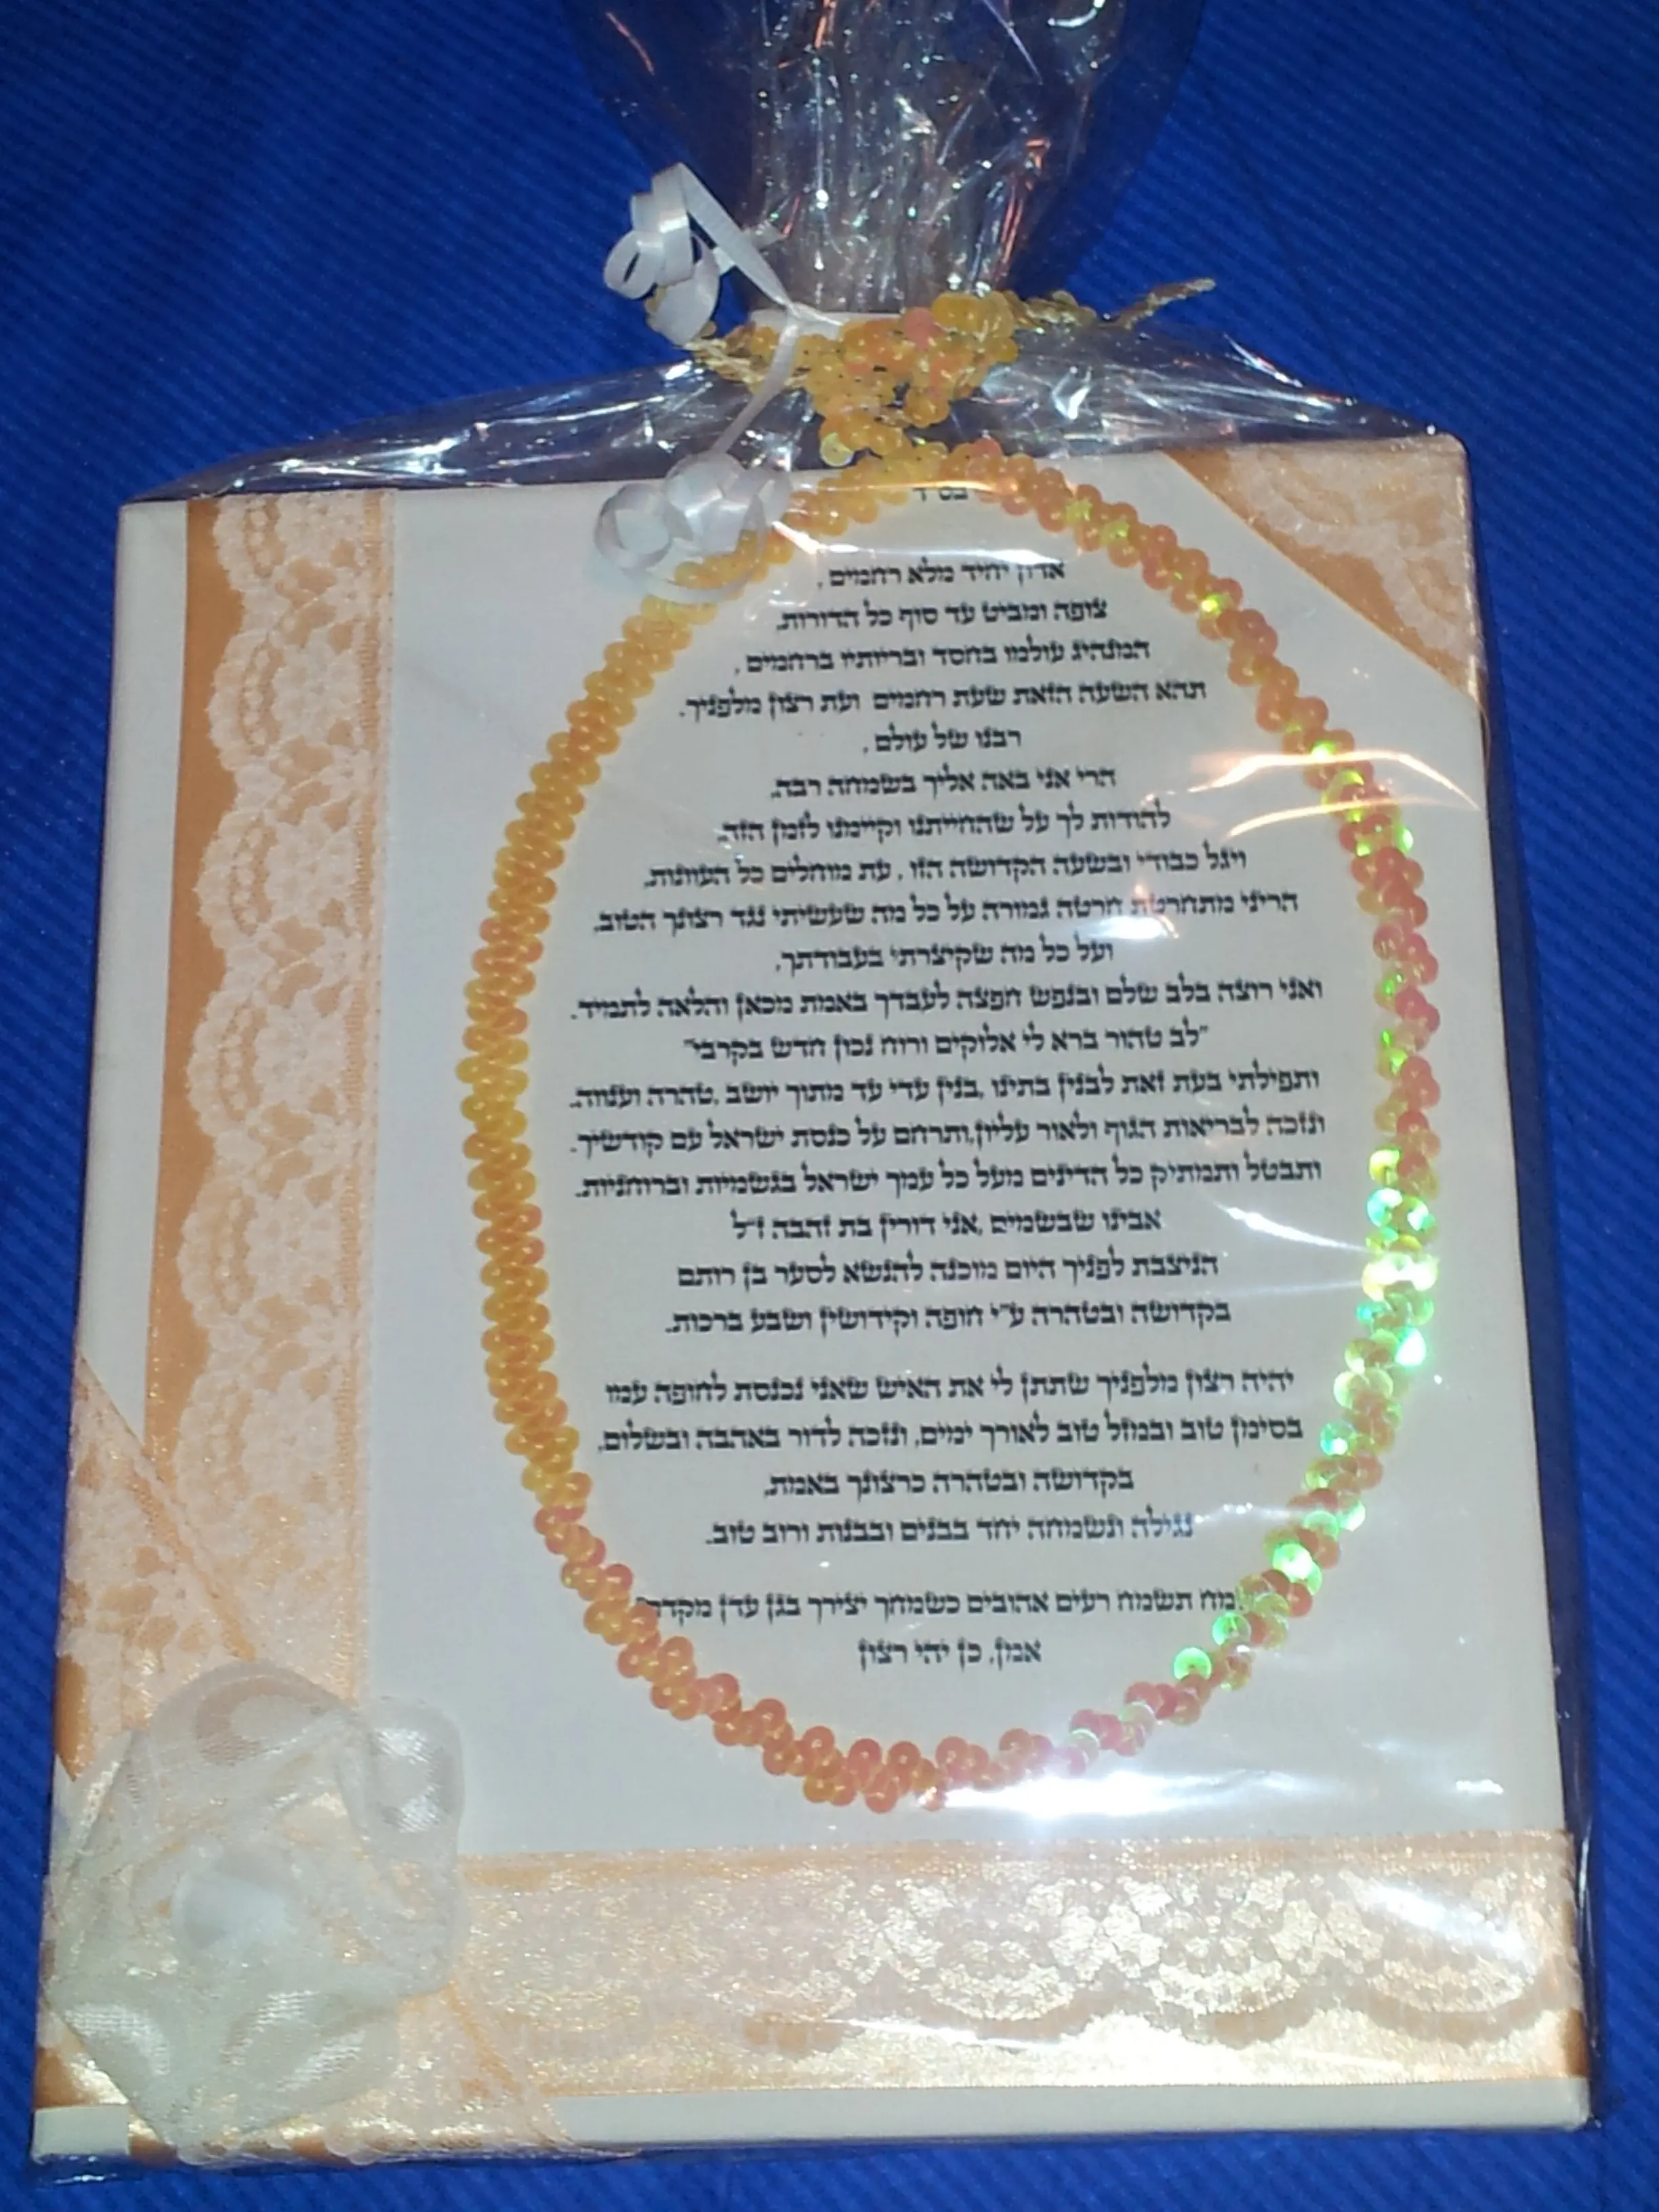 בס״ד
אדון יחיד מלא רחמים ,
צופה ומביט עד סוף כל הדורות.
המנהיג עולמו בחסד ובריותיו ברחמים ,
תהא השעה הזאת שעת רחמים ועת רצון מלפניך.
רבנו של עולם ,
הרי אני באה אליך בשמחה רבה,
להודות לך על שהחייתנו וקיימנו לזמן הזה.
ויגל כבודי ובשעה הקדושה הזו , עת מוחלים כל העוונות,
הריני מתחרטת חרטה גמורה על כל מה שעשיתי נגד רצונך הטוב,
ועל כל מה שקיצרתי בעבודתך,
ואני רוצה בלב שלם ובנפש חפצה לעבדך באמת מכאן והלאה לתמיד.
"לב טהור ברא לי אלוקים ורוח נכון חדש בקרבי"
ותפילתי בעת זאת לבנין בתינו ,בנין עדי עד מתוך יושב ,טהרה וענווה.
ונזכה לבריאות הגוף ולאור עליון,ותרחם על כנסת ישראל עם קודשיך.
ותבטל ותמתיק כל הדינים מעל כל עמך ישראל בגשמיות וברוחניות.
אבינו שבשמים ,אני דורין בת זהבה ז״ל
הניצבת לפניך היום מוכנה להנשא לסער בן רותם
בקדושה ובטהרה ע״י חופה וקידושין ושבע ברכות.
יהיה רצון מלפניך שתתן לי את האיש שאני נכנסת לחופה עמו
בסימן טוב ובמזל טוב לאורך ימים, ונזכה לדור באהבה ובשלום,
בקדושה ובטהרה כרצונך באמת,
נגילה ונשמחה יחד בבנים ובבנות ורוב טוב.
תשמח רעים אהובים כשמחך יצירך בגן עדן מקדם
אמן, כן יהי רצון